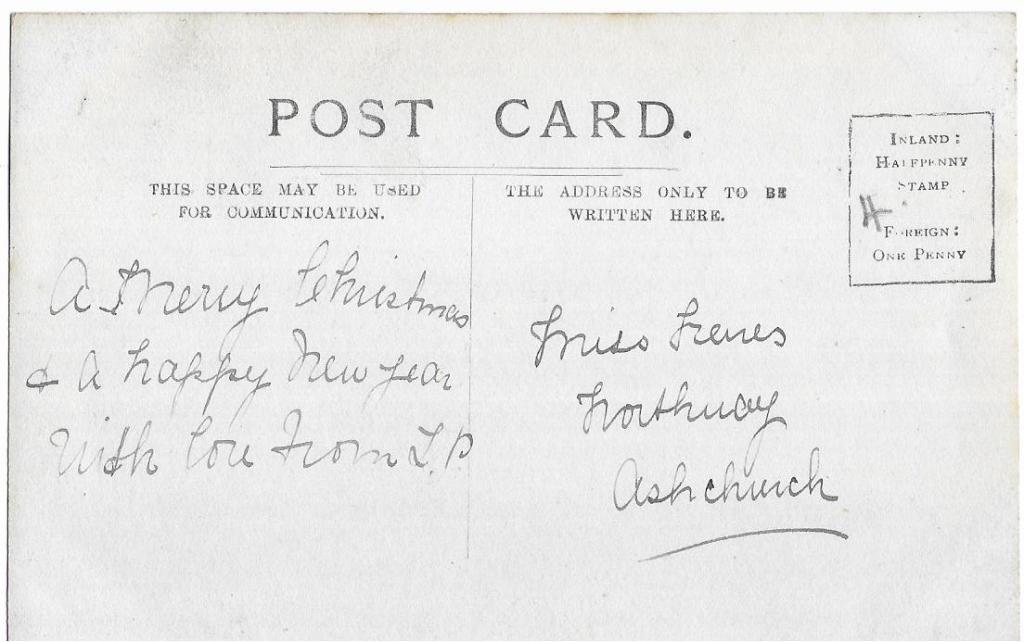 POST CARD.
THIS SPACE MAY BE USED
FOR COMMUNICATION.
THE ADDRESS ONLY TO BE
WRITTEN HERE.
INLAND:
HALFPENNY
STAMP.
FOREIGN:
ONE PENNY
A Merry Christmas
& A happy New year
With love From
Miss
Northway
Ashchurch